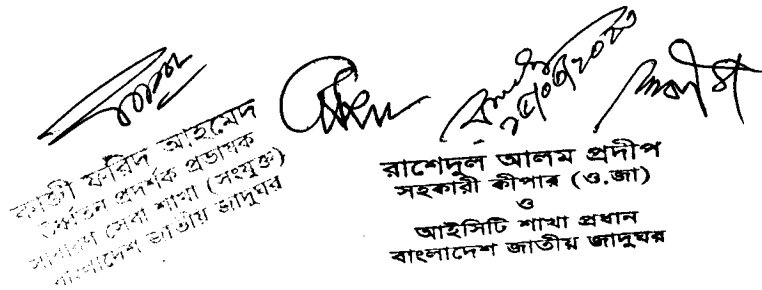 কাজী ফরিদ আহমেদ
প্রদর্শক প্রভাষক
সাধারণ সেবা শাখা (সংযুক্ত)
বাংলাদেশ জাতীয় জাদুঘর
রাশেদুল আলম প্রদীপ
সহকারী কীপার (ও.জা)
ও
আইসিটি শাখা প্রধান
বাংলাদেশ জাতীয় জাদুঘর